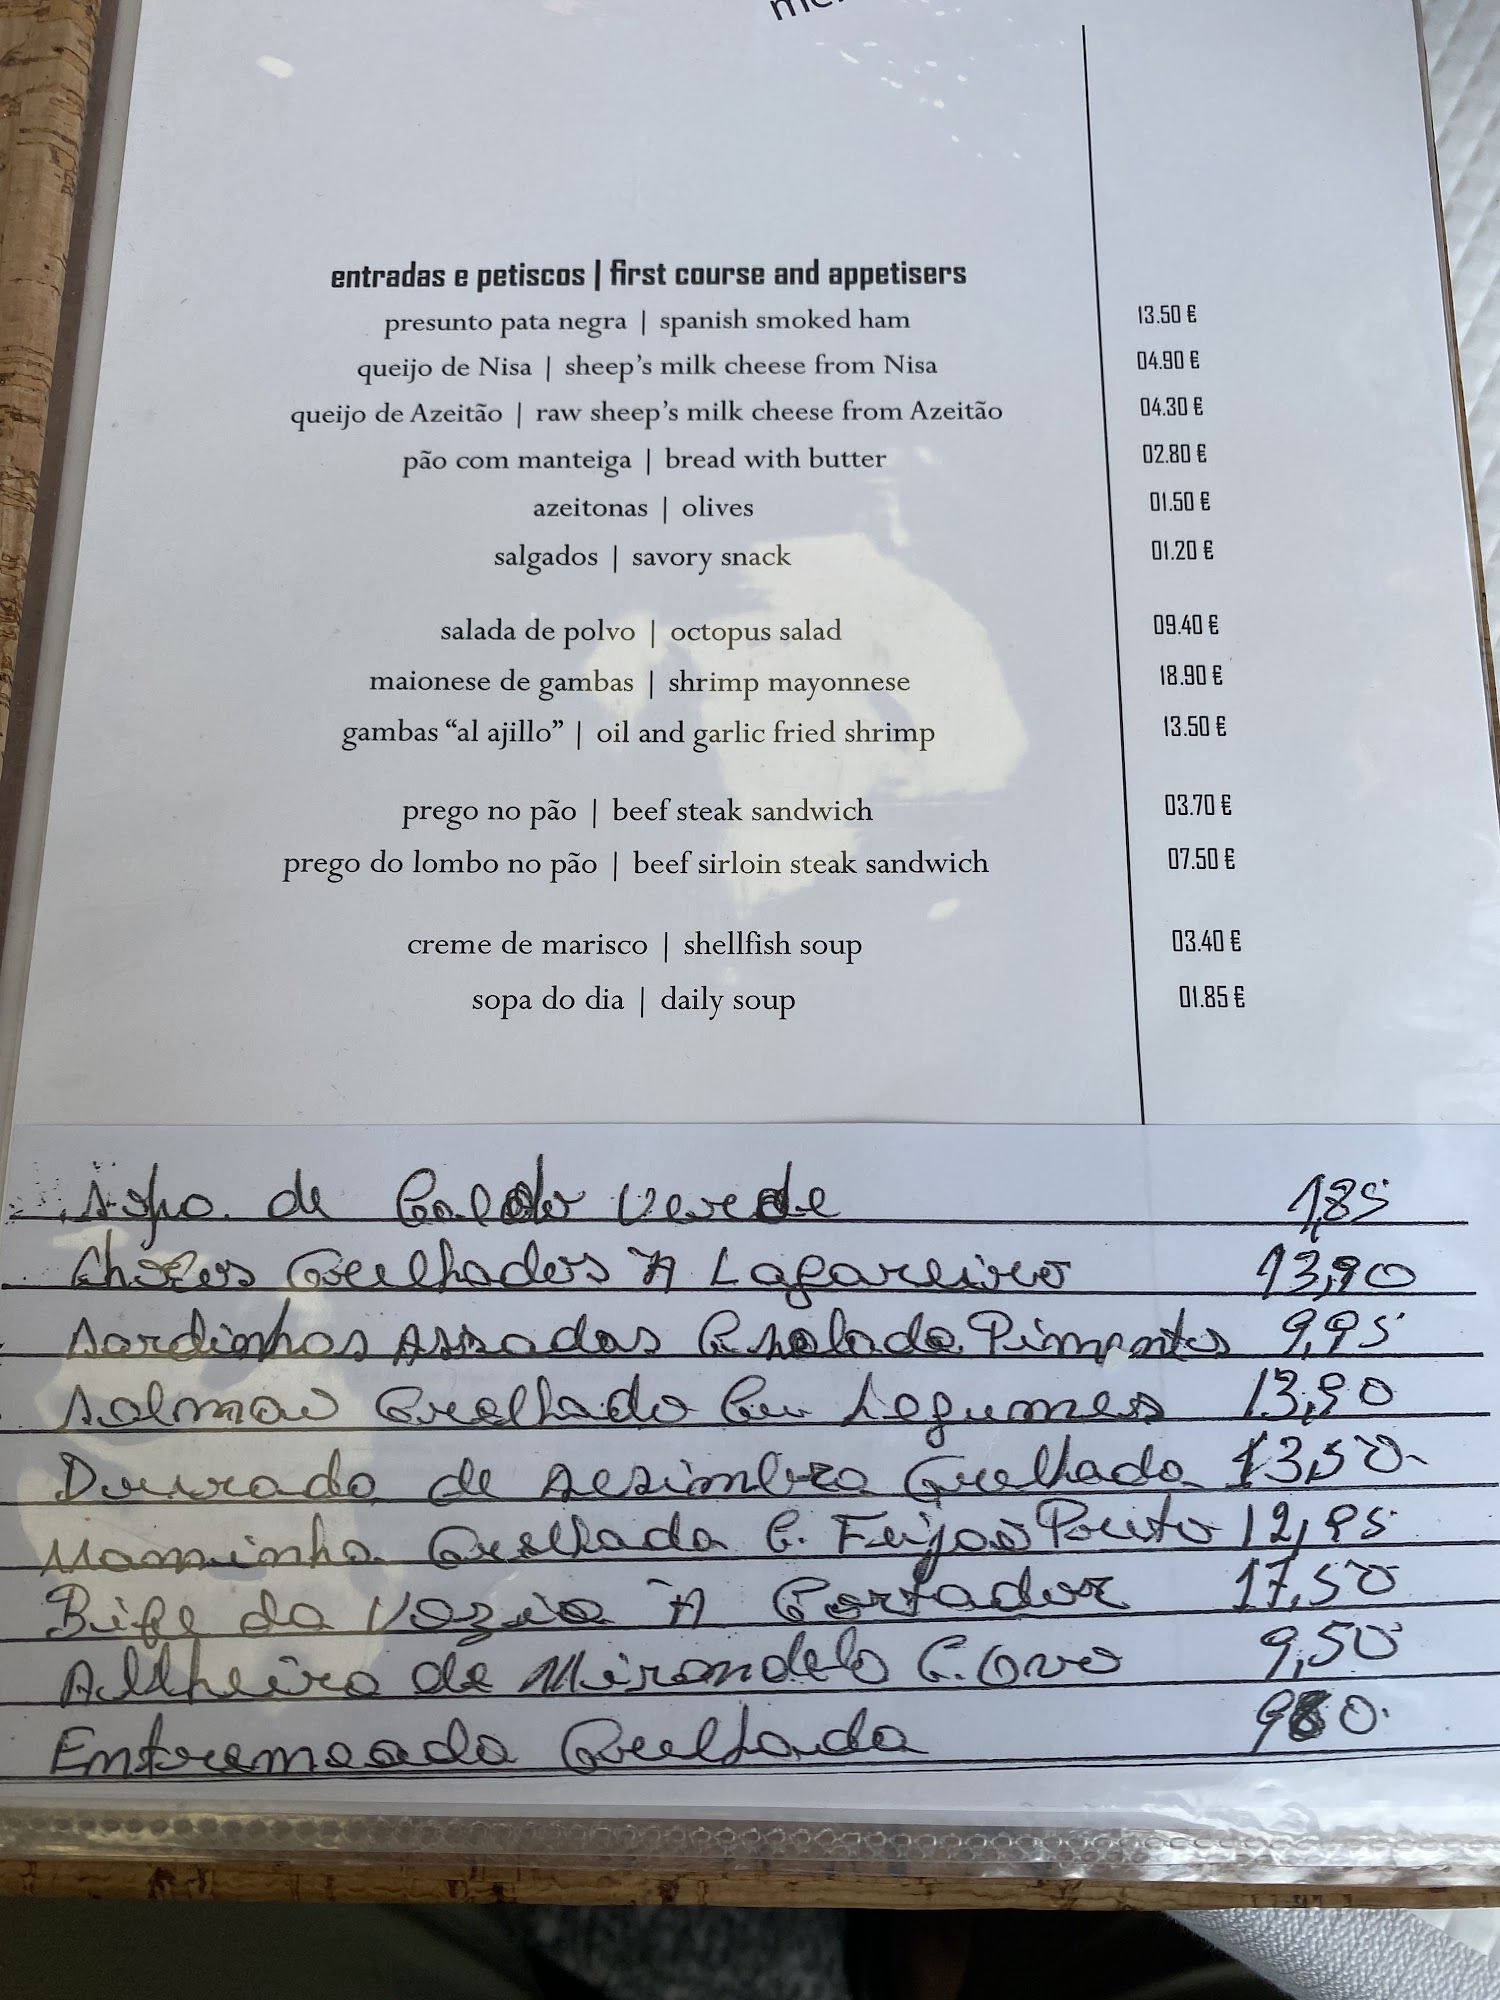 entradas e petiscos | first course and appetisers
presunto pata negra | spanish smoked ham 13.50 €
queijo de Nisa | sheep's milk cheese from Nisa 04.90 €
queijo de Azeitão | raw sheep's milk cheese from Azeitão 04.30 €
pão com manteiga | bread with butter 02.80 €
azeitonas | olives 01.50 €
salgados | savory snack 01.20 €
salada de polvo | octopus salad 09.40 €
maionese de gambas | shrimp mayonnese 18.90 €
gambas “al ajillo” | oil and garlic fried shrimp 13.50 €
prego no pão | beef steak sandwich 03.70 €
prego do lombo no pão | beef sirloin steak sandwich 07.50 €
creme de marisco | shellfish soup 03.40 €
sopa do dia | daily soup 01.85 €
Sopa de Caldo Verde 1,85
Chocos Grelhados À Lagareiro 13,90
Sardinhas Assadas C. Salada Pimentos 9,95
Salmão Grelhado Legumes 13,90
Dourada de Sesimbra Grelhada 13,50
Maminha Grelhada C. Feijão Preto 12,95
Bife da Vazia À Cortador 17,50
Alheira de Mirandela C. Ovo 9,50
Entremeada Grelhada